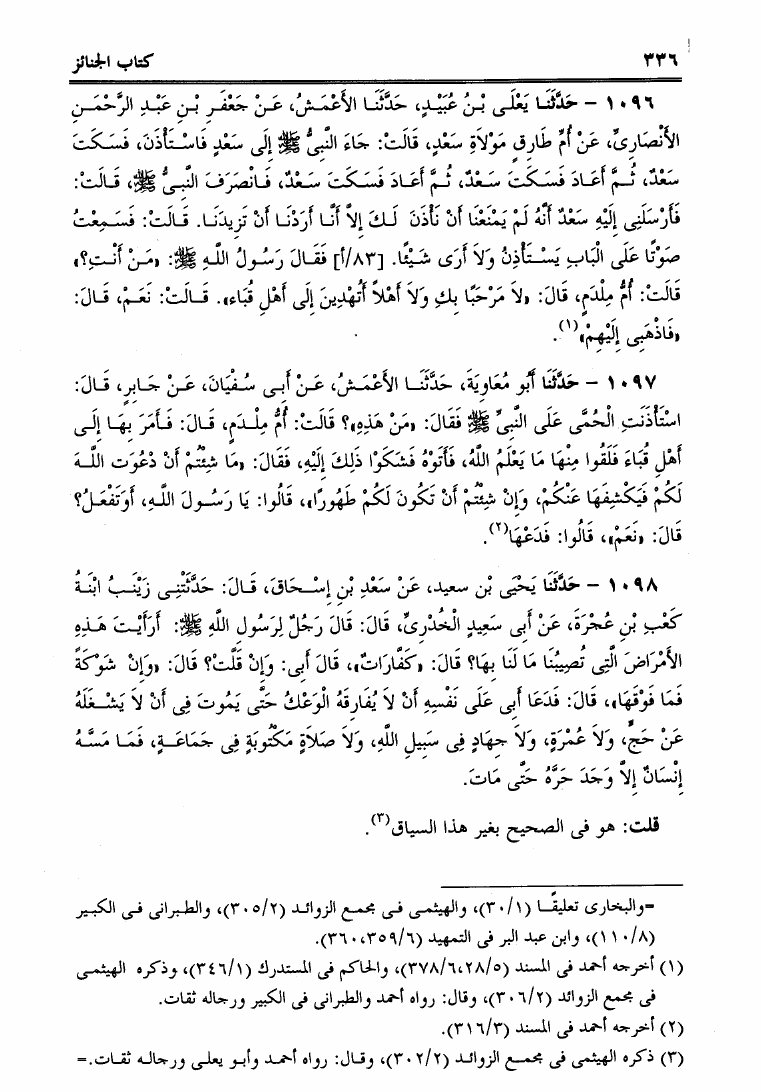 ٣٣٦
كتاب الجنائز
١٠٩٦ – حَدَّثَنَا يَعْلَى بْنُ عُبَيْدٍ، حَدَّثَنَا الأَعْمَشُ، عَنْ جَعْفَرِ بْنِ عَبْدِ الرَّحْمَنِ
الأَنْصَارِىِّ، عَنْ أُمِّ طَارِقٍ مَوْلاَةِ سَعْدٍ، قَالَتْ: جَاءَ النَّبِىُّ ﷺ إِلَى سَعْدٍ فَاسْتَأْذَنَ، فَسَكَتَ
سَعْدٌ، ثُمَّ أَعَادَ فَسَكَتَ سَعْدٌ، ثُمَّ أَعَادَ فَسَكَتَ سَعْدٌ، فَانْصَرَفَ النَّبِىُّ ﷺ، قَالَتْ:
فَأَرْسَلَنِى إِلَيْهِ سَعْدٌ أَنَّهُ لَمْ يَمْنَعْنَا أَنْ نَأْذَنَ لَكَ إِلاَّ أَنَّا أَرَدْنَا أَنْ تَزِيدَنَا. قَالَتْ: فَسَمِعْتُ
صَوْتًا عَلَى الْبَابِ يَسْتَأْذِنُ وَلاَ أَرَى شَيْئًا. [٨٣/أ] فَقَالَ رَسُولُ اللَّهِ ﷺ: «مَنْ أَنْتِ؟»
قَالَتْ: أُمُّ مِلْدَمٍ، قَالَ: «لاَ مَرْحَبًا بِكِ وَلاَ أَهْلاً أَتُهْدِينَ إِلَى أَهْلِ قُبَاء». قَالَتْ: نَعَمْ، قَالَ:
«فَاذْهَبِى إِلَيْهِمْ»(١).
١٠٩٧ – حَدَّثَنَا أَبُو مُعَاوِيَةَ، حَدَّثَنَا الأَعْمَشُ، عَنْ أَبِى سُفْيَانَ، عَنْ جَابِرٍ، قَالَ:
اسْتَأْذَنَتِ الْحُمَّى عَلَى النَّبِىِّ ﷺ فَقَالَ: «مَنْ هَذِهِ»؟ قَالَتْ: أُمُّ مِلْدَمٍ، قَالَ: فَأَمَرَ بِهَا إِلَى
أَهْلِ قُبَاءَ فَلَقُوا مِنْهَا مَا يَعْلَمُ اللَّهُ، فَأَتَوْهُ فَشَكَوْا ذَلِكَ إِلَيْهِ، فَقَالَ: «مَا شِئْتُمْ أَنْ دَعُوَتِ اللَّهَ
لَكُمْ فَيَكْشِفَهَا عَنْكُمْ، وَإِنْ شِئْتُمْ أَنْ تَكُونَ لَكُمْ طَهُورًا»، قَالُوا: يَا رَسُولَ اللَّهِ، أَوَتَفْعَلُ؟
قَالَ: «نَعَمْ»، قَالُوا: فَدَعْهَا(٢).
١٠٩٨ – حَدَّثَنَا يَحْيَى بْن سعيد، عَنْ سَعْدِ بْنِ إِسْحَاقَ، قَالَ: حَدَّثَتْنِى زَيْنَبُ ابْنَةُ
كَعْبِ بْنِ عُجْرَةَ، عَنْ أَبِى سَعِيدٍ الْخُدْرِىِّ، قَالَ: قَالَ رَجُلٌ لِرَسُولِ اللَّهِ ﷺ: أَرَأَيْتَ هَذِهِ
الأَمْرَاضَ الَّتِى تُصِيبُنَا مَا لَنَا بِهَا؟ قَالَ: «كَفَّارَاتٌ»، قَالَ أَبِى: وَإِنْ قَلَّتْ؟ قَالَ: «وَإِنْ شَوْكَةً
فَمَا فَوْقَهَا»، قَالَ: فَدَعَا أَبِى عَلَى نَفْسِهِ أَنْ لاَ يُفَارِقَهُ الْوَعْكُ حَتَّى يَمُوتَ فِى أَنْ لاَ يَشْغَلَهُ
عَنْ حَجٍّ، وَلاَ عُمْرَةٍ، وَلاَ جِهَادٍ فِى سَبِيلِ اللَّهِ، وَلاَ صَلاَةٍ مَكْتُوبَةٍ فِى جَمَاعَةٍ، فَمَا مَسَّهُ
إِنْسَانٌ إِلاَّ وَجَدَ حَرَّهُ حَتَّى مَاتَ.
قلت: هو فى الصحيح بغير هذا السياق(٣).
=والبخارى تعليقًا (٣٠/١)، والهيثمى فى مجمع الزوائد (٣٠٥/٢)، والطبرانى فى الكبير
(١١٠/٨)، وابن عبد البر فى التمهيد (٣٥٩/٦، ٣٦٠).
(١) أخرجه أحمد فى المسند (٢٨/٥، ٣٧٨/٦)، والحاكم فى المستدرك (٣٤٦/١)، وذكره الهيثمى
فى مجمع الزوائد (٣٠٦/٢)، وقال: رواه أحمد والطبرانى فى الكبير ورجاله ثقات.
(٢) أخرجه أحمد فى المسند (٣١٦/٣).
(٣) ذكره الهيثمى فى مجمع الزوائد (٣٠٢/٢)، وقال: رواه أحمد وأبو يعلى ورجاله ثقات.=